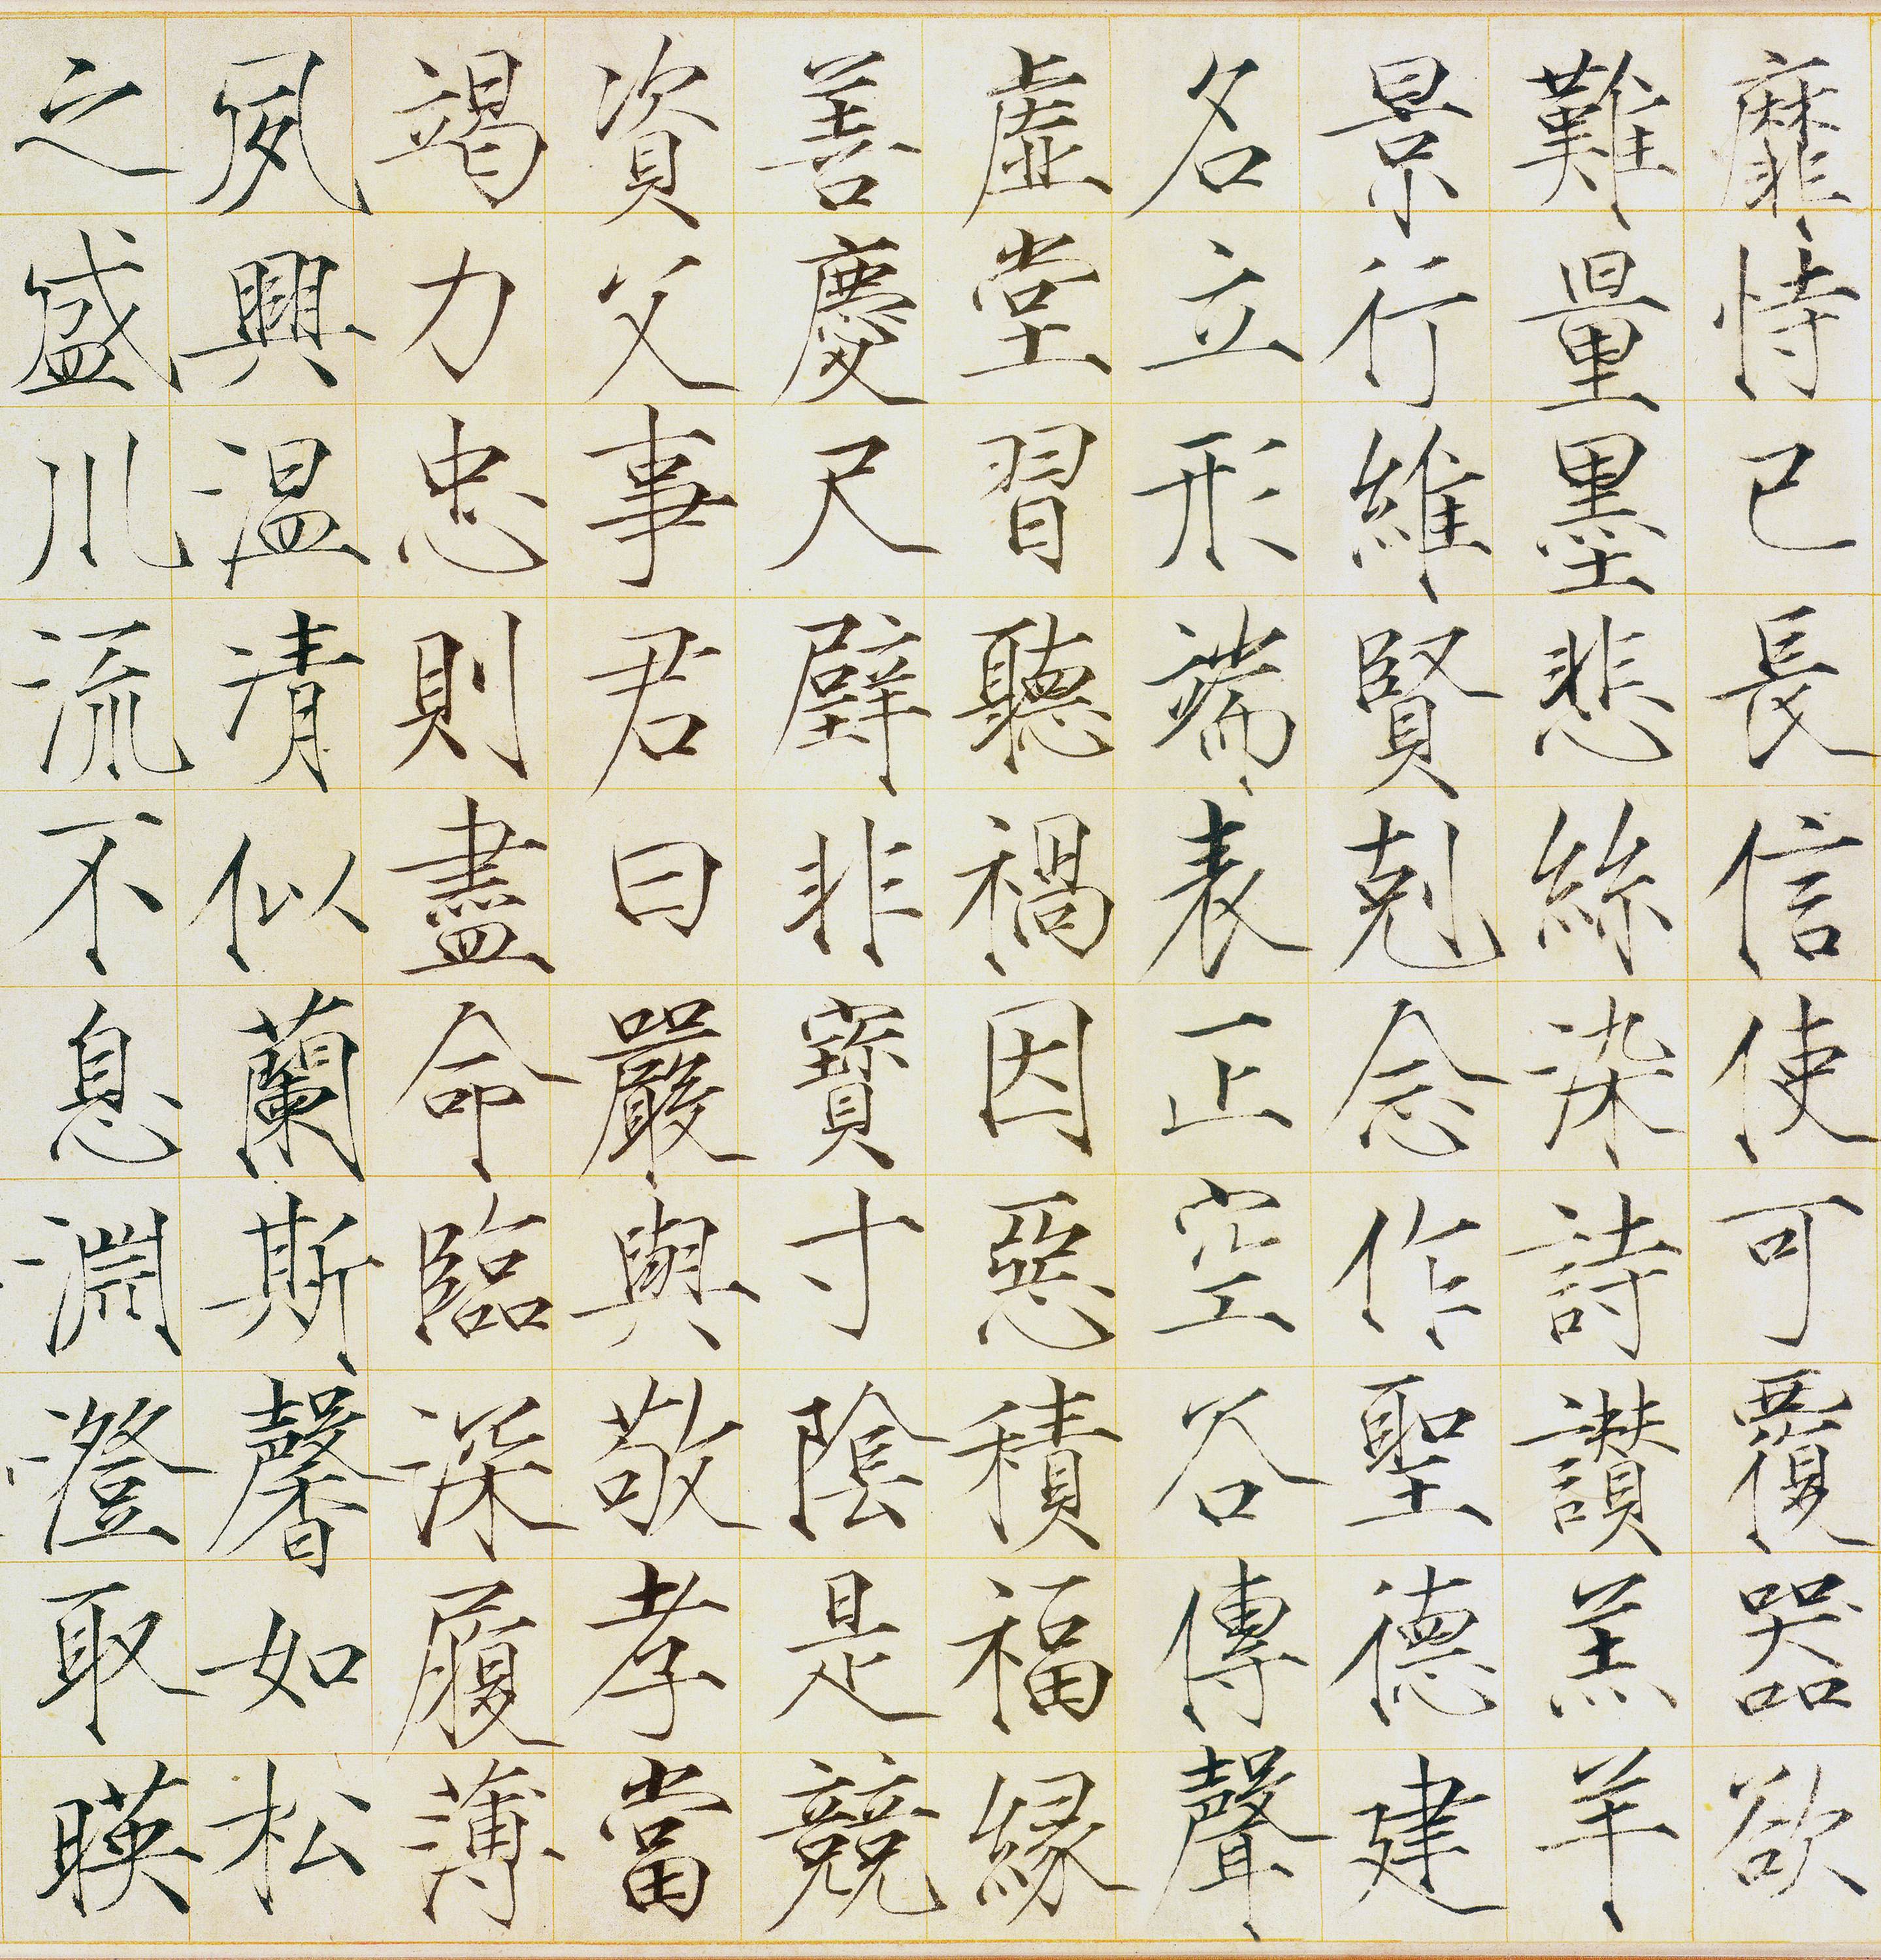 靡恃已長信使可覆器欲
難量墨悲絲染詩讃羔羊
景行維賢剋念作聖德建
名立形端表正空谷傳聲
虛堂習聽禍因惡積福緣
善慶尺璧非寶寸陰是競
資父事君曰嚴與敬孝當
竭力忠則盡命臨深履薄
夙興温清似蘭斯馨如松
之盛川流不息淵澄取暎